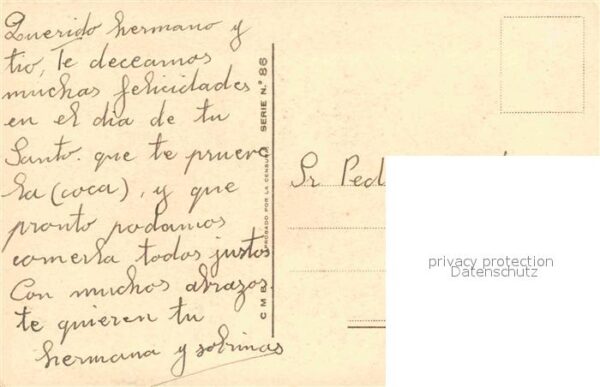 Querido hermano y
tio, Te deceamos
muchas felicidades
en el dia de tu
Santo. que te prueve
la (coca), y que
pronto podamos
comerla todos justos
Con muchos abrazos.
te quieren tu
hermana y sobrinas
C M B APROBADO POR LA CENSURA SERIE N.º 86
Sr Ped
privacy protection
Datenschutz